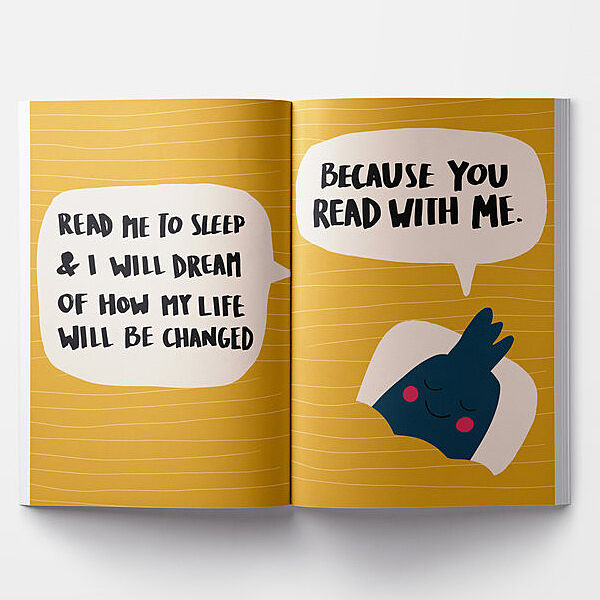 READ ME TO SLEEP
& I WILL DREAM
OF HOW MY LIFE
WILL BE CHANGED
BECAUSE YOU
READ WITH ME.